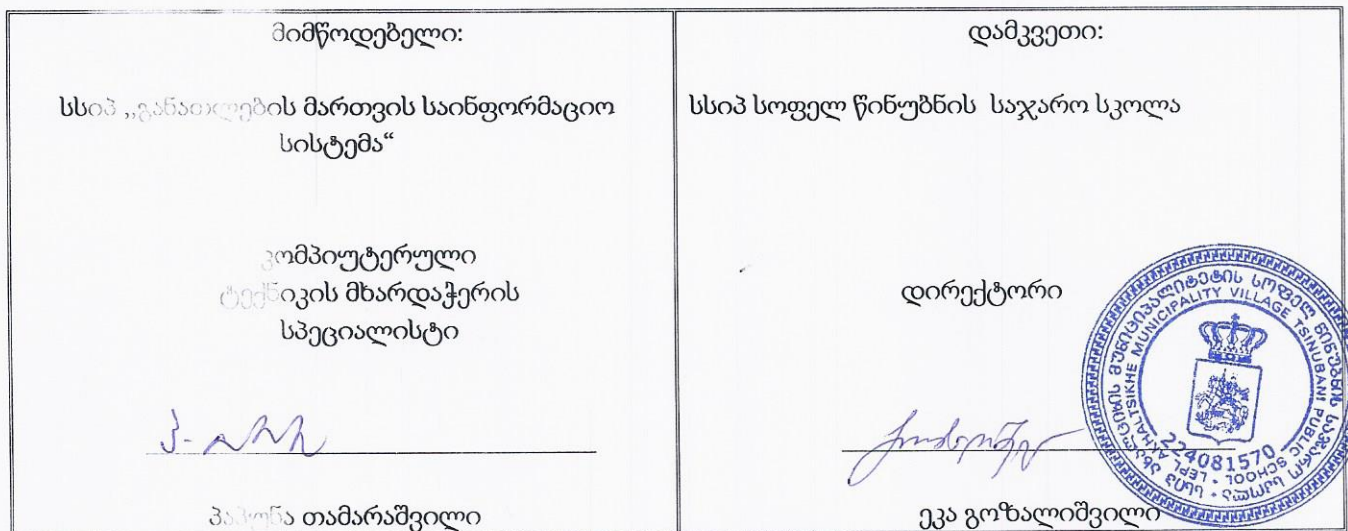 მიმწოდებელი:
სსიპ „განათლების მართვის საინფორმაციო
სისტემა“
კომპიუტერული
ტექნიკის მხარდაჭერის
სპეციალისტი
პაპუნა თამარაშვილი
დამკვეთი:
სსიპ სოფელ წინუბნის საჯარო სკოლა
დირექტორი
ეკა გოზალიშვილი
მუნიციპალიტეტის სოფელ წინუბნის საჯარო სკოლა
LEPL AKHALTSIKHE MUNICIPALITY VILLAGE TSINUBANI PUBLIC SCHOOL
224081570